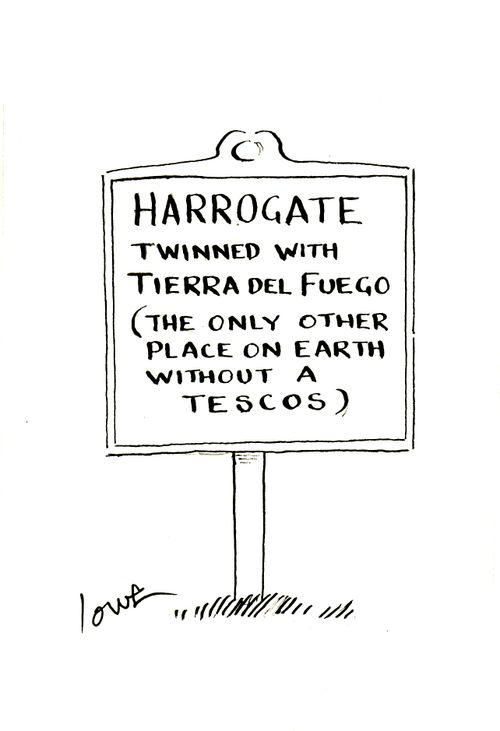 HARROGATE
TWINNED WITH
TIERRA DEL FUEGO
(THE ONLY OTHER
PLACE ON EARTH
WITHOUT A
TESCOS)
lowe